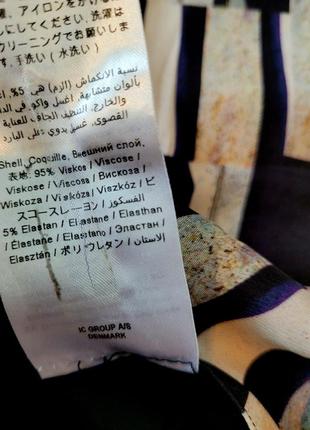 援、アイロンをかける
にしてください、洗濯は
クリーニングでお願いしま
す。手洗い(水洗い)
نسبة الانكماش (الزم) هي 5%.
بألوان متشابهة، اغسل واكو
والخارج. التنظيف الجاف للعناية
القصوى. غسيل يدوي
Shell, Coquille, Внешний слой,
表地: 95% Viskos / Viscose /
Viskose / Viscosa / Вискоза /
Wiskoza / Viskóza / Viszkóz / ビ
スコースレーヨン / الفسكوز
5% Elastan / Elastane / Elasthan
/ Elastano / Elastane / Эластан /
Elasztán / ポリウレタン / الاستان
IC GROUP A/S
DENMARK